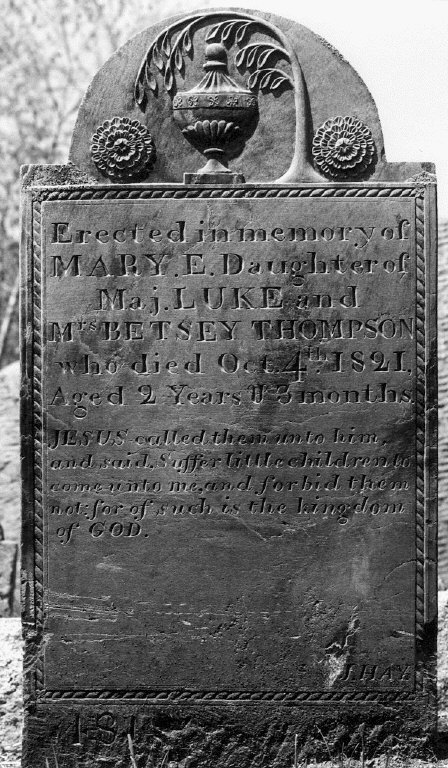 Erected in memory of
MARY. E. Daughter of
Maj. LUKE and
Mrs BETSEY THOMPSON
who died Oct. 4th 1821,
Aged 2 Years & 3 months
JESUS called them unto him,
and said, Suffer little children to
come unto me, and forbid them
not: for of such is the kingdom
of GOD.
J. HAY